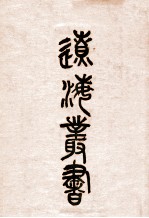 遼海叢書